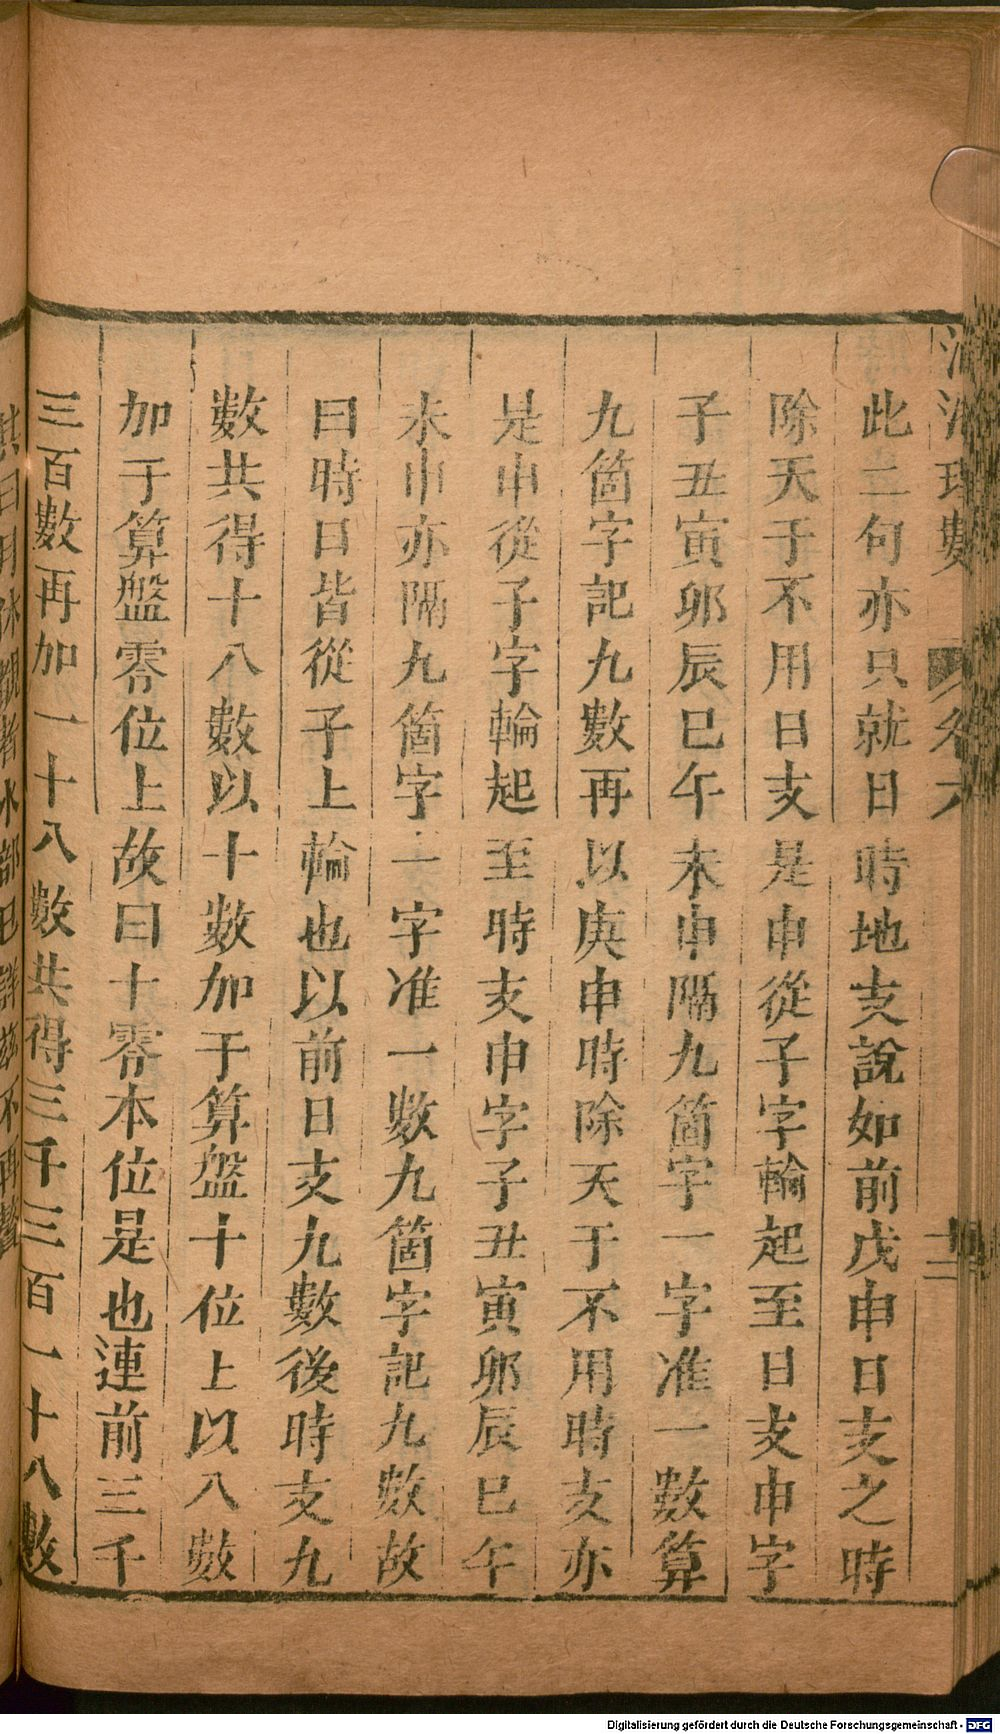 理數 卷六
十二
此二句亦只就日時地支說如前戊申日支之時
除天于不用日支是申從子字輪起至日支申字
子丑寅卯辰巳午未申隔九箇字一字准一數算
九箇字記九數再以庚申時除天于不用時支亦
是申從子字輪起至時支申字子丑寅卯辰巳午
未申亦隔九箇字一字准一數九箇字記九數故
曰時日皆從子上輪也以前日支九數後時支九
數共得十八數以十數加于算盤十位上以八數
加于算盤零位上故曰十零本位是也連前三千
三百數再加一十八數共得三千三百一十八數
Digitalisierung gefördert durch die Deutsche Forschungsgemeinschaft - DFG